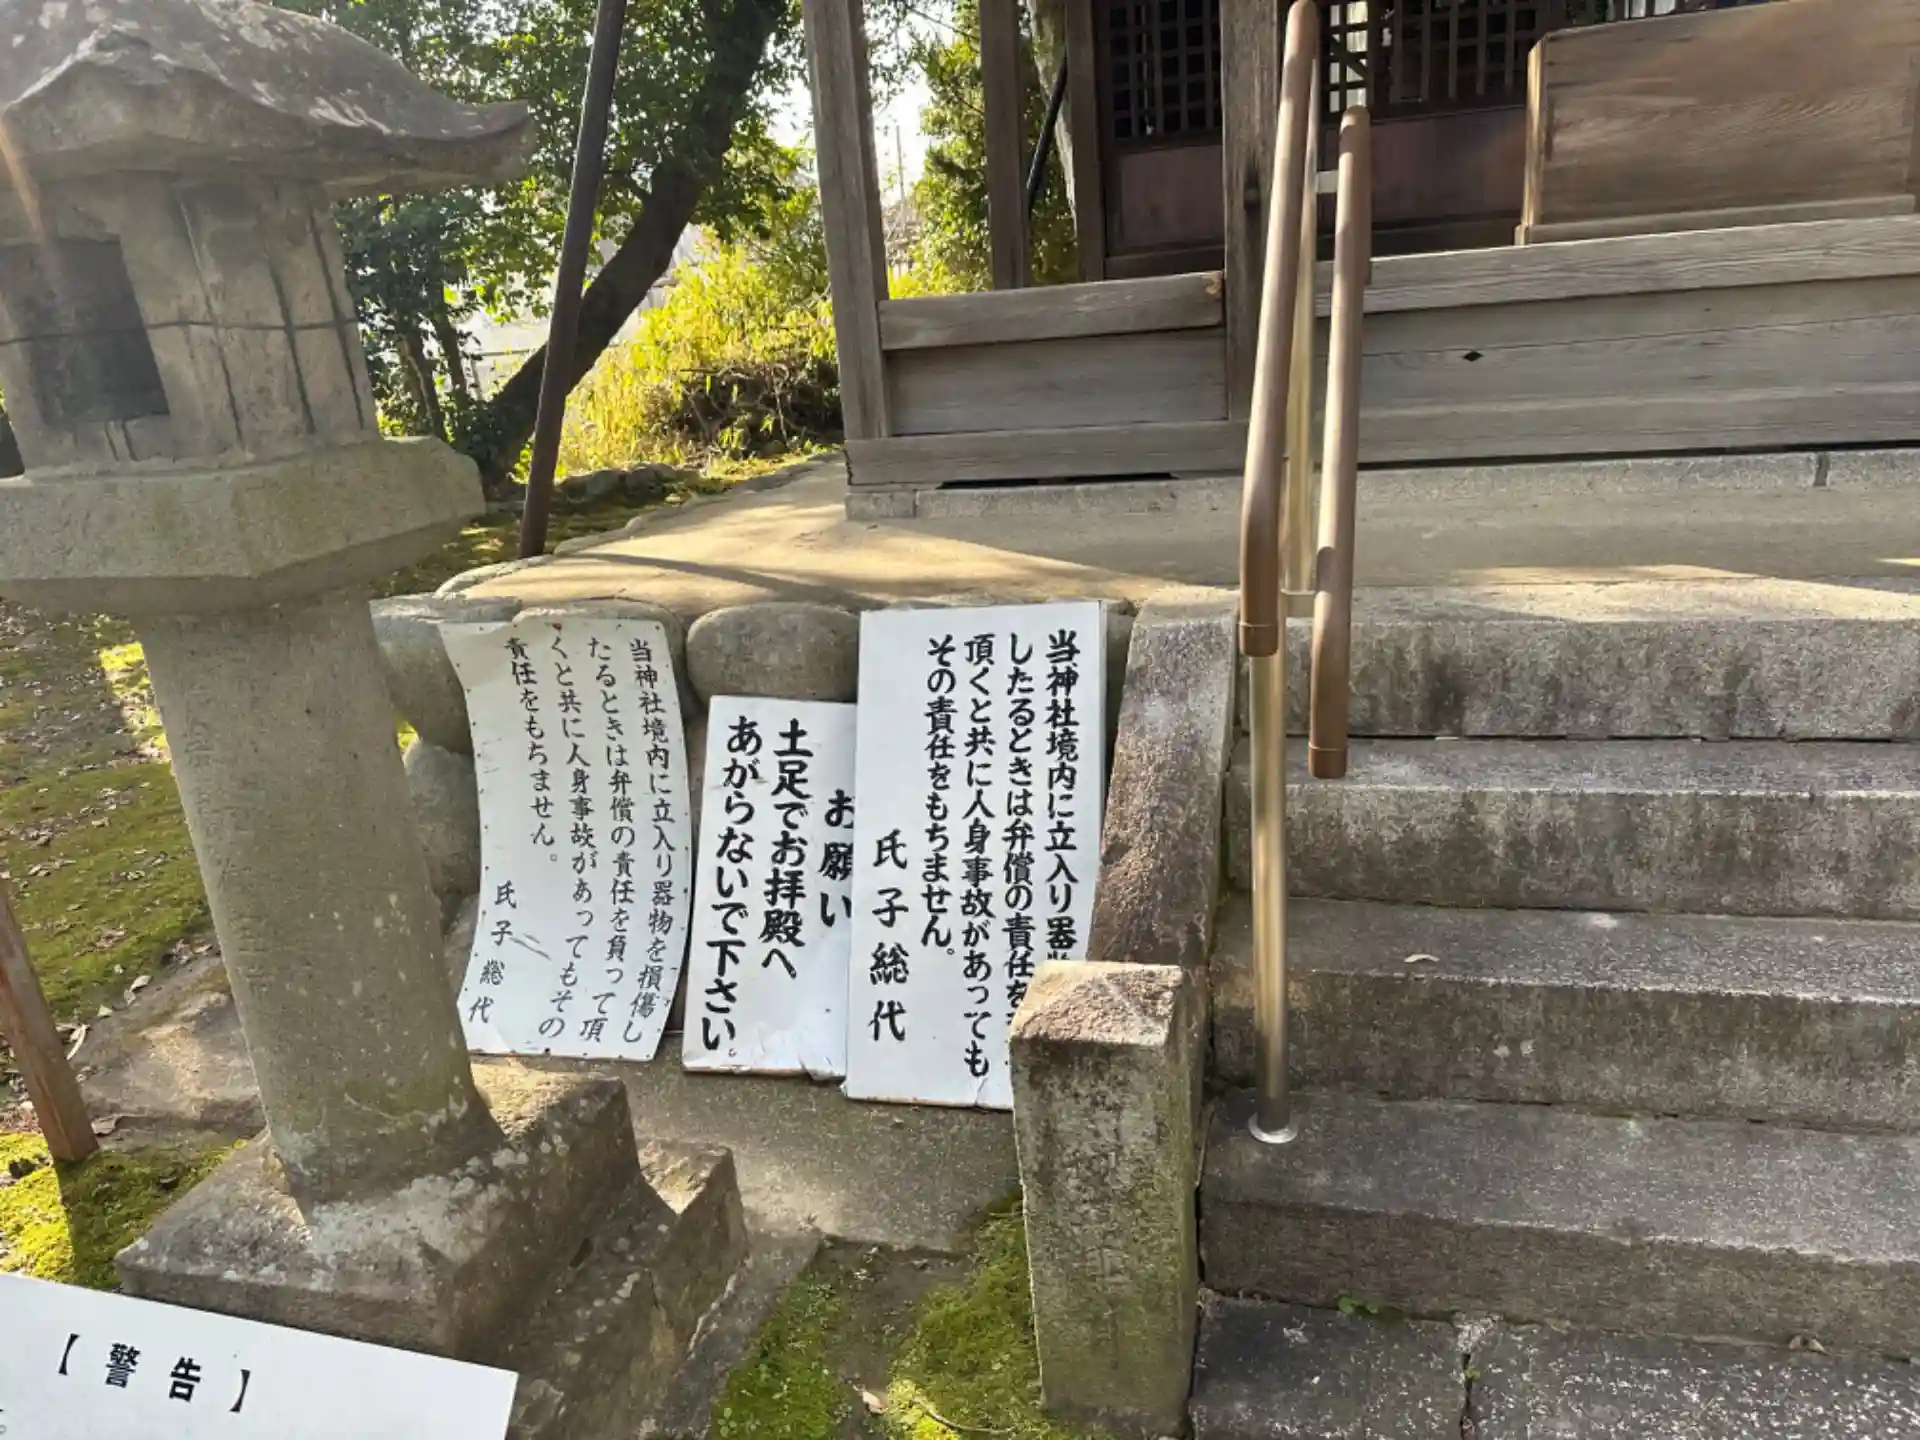 当神社境内に立入り器物を損傷し
たるときは弁償の責任を負って頂
くと共に人身事故があってもその
責任をもちません。
氏子総代
お願い
土足でお拝殿へ
あがらないで下さい。
当神社境内に立入り器
したるときは弁償の責任を
頂くと共に人身事故があっても
その責任をもちません。
氏子総代
【警告】